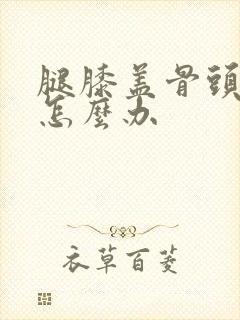 腿膝盖骨頭
怎麼办
衣草百菱